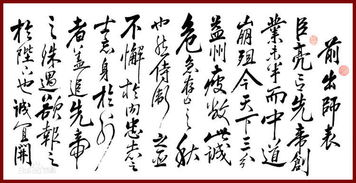 前出師表
臣亮言先帝創
業未半而中道
崩殂今天下三分
益州疲敝此誠
危急存亡之秋
也然侍衛之臣
不懈於內忠志之
士忘身於外
者蓋追先帝
之殊遇欲報之
於陛下也誠宜開